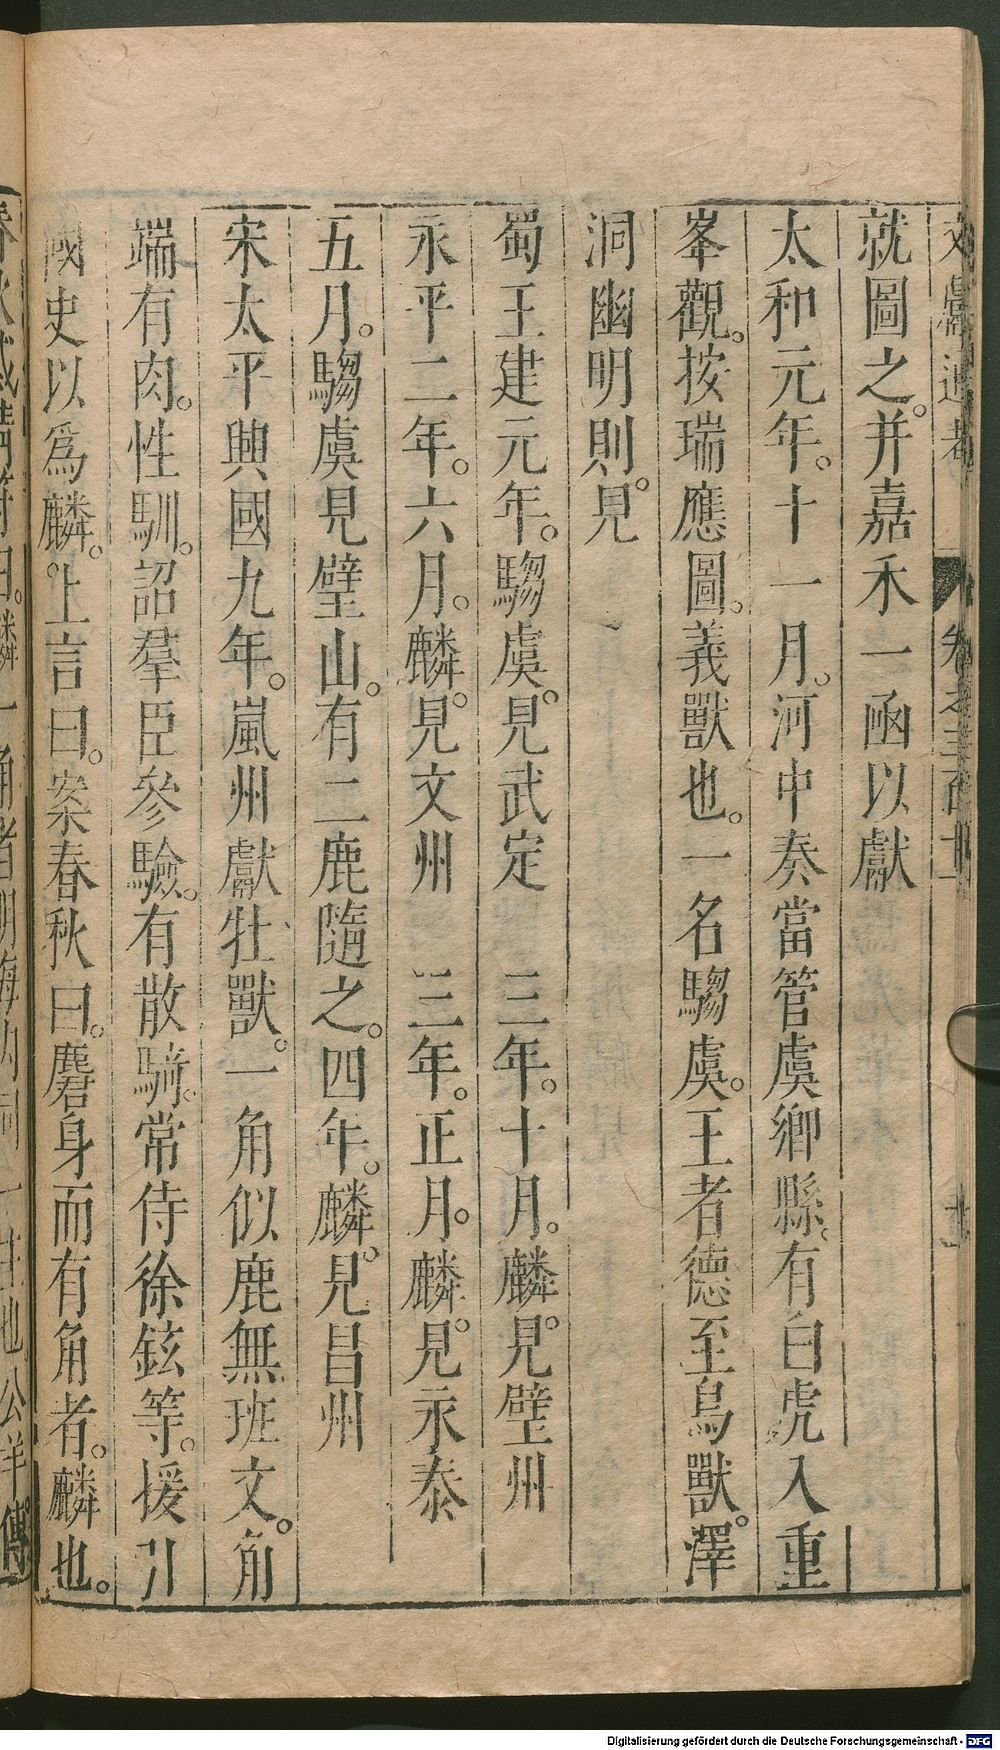 就圖之。并嘉禾一函以獻
太和元年。十一月。河中奏當管虞鄉縣。有白虎入重
峯觀。按瑞應圖。義獸也。一名騶虞。王者德至鳥獸。澤
洞幽明則。見
蜀王建元年。騶虞。見武定　三年。十月。麟。見壁州
永平二年。六月。麟。見文州　三年。正月。麟。見永泰
五月。騶虞見壁山。有二鹿隨之。四年。麟。見昌州
宋太平興國九年。嵐州獻牡獸。一角似鹿無班文。角
端有肉。性馴。詔羣臣參驗。有散騎。常侍徐鉉等。援引
國史以爲麟。上言曰。案春秋曰。麕身而有角者。麟也。
Digitalisierung gefördert durch die Deutsche Forschungsgemeinschaft - DFG